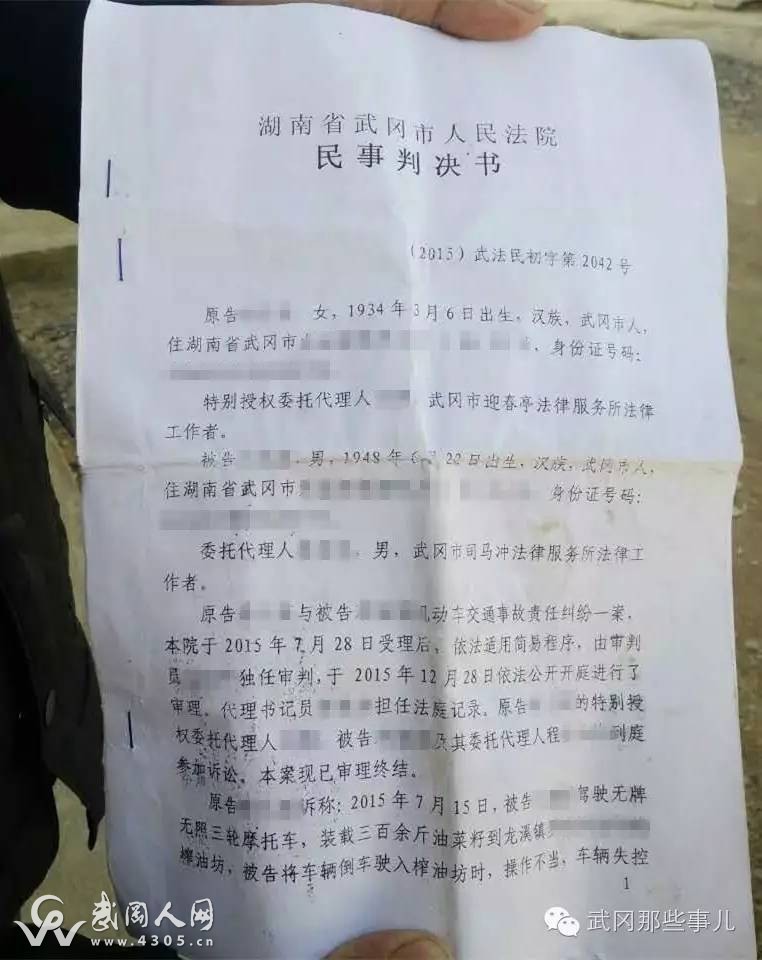 湖南省武冈市人民法院
民事判决书
（2015）武法民初字第2042号
原告 女，1934年3月6日出生，汉族，武冈市人，
住湖南省武冈市 ，身份证号码：
特别授权委托代理人 武冈市迎春亭法律服务所法律
工作者。
被告 ，男，1948年6月22日出生，汉族，武冈市人，
住湖南省武冈市 身份证号码：
委托代理人 ，男，武冈市司马冲法律服务所法律工
作者。
原告 与被告 机动车交通事故责任纠纷一案，
本院于2015年7月28日受理后，依法适用简易程序，由审判
员 独任审判，于2015年12月28日依法公开开庭进行了
审理。代理书记员 担任法庭记录。原告 的特别授
权委托代理人 被告 及其委托代理人程 到庭
参加诉讼。本案现已审理终结。
原告 诉称：2015年7月15日，被告 驾驶无牌
无照三轮摩托车，装载三百余斤油菜籽到龙溪镇
榨油坊，被告将车辆倒车驶入榨油坊时，操作不当，车辆失控
1
武冈人网
www.4305.cn
武冈那些事儿